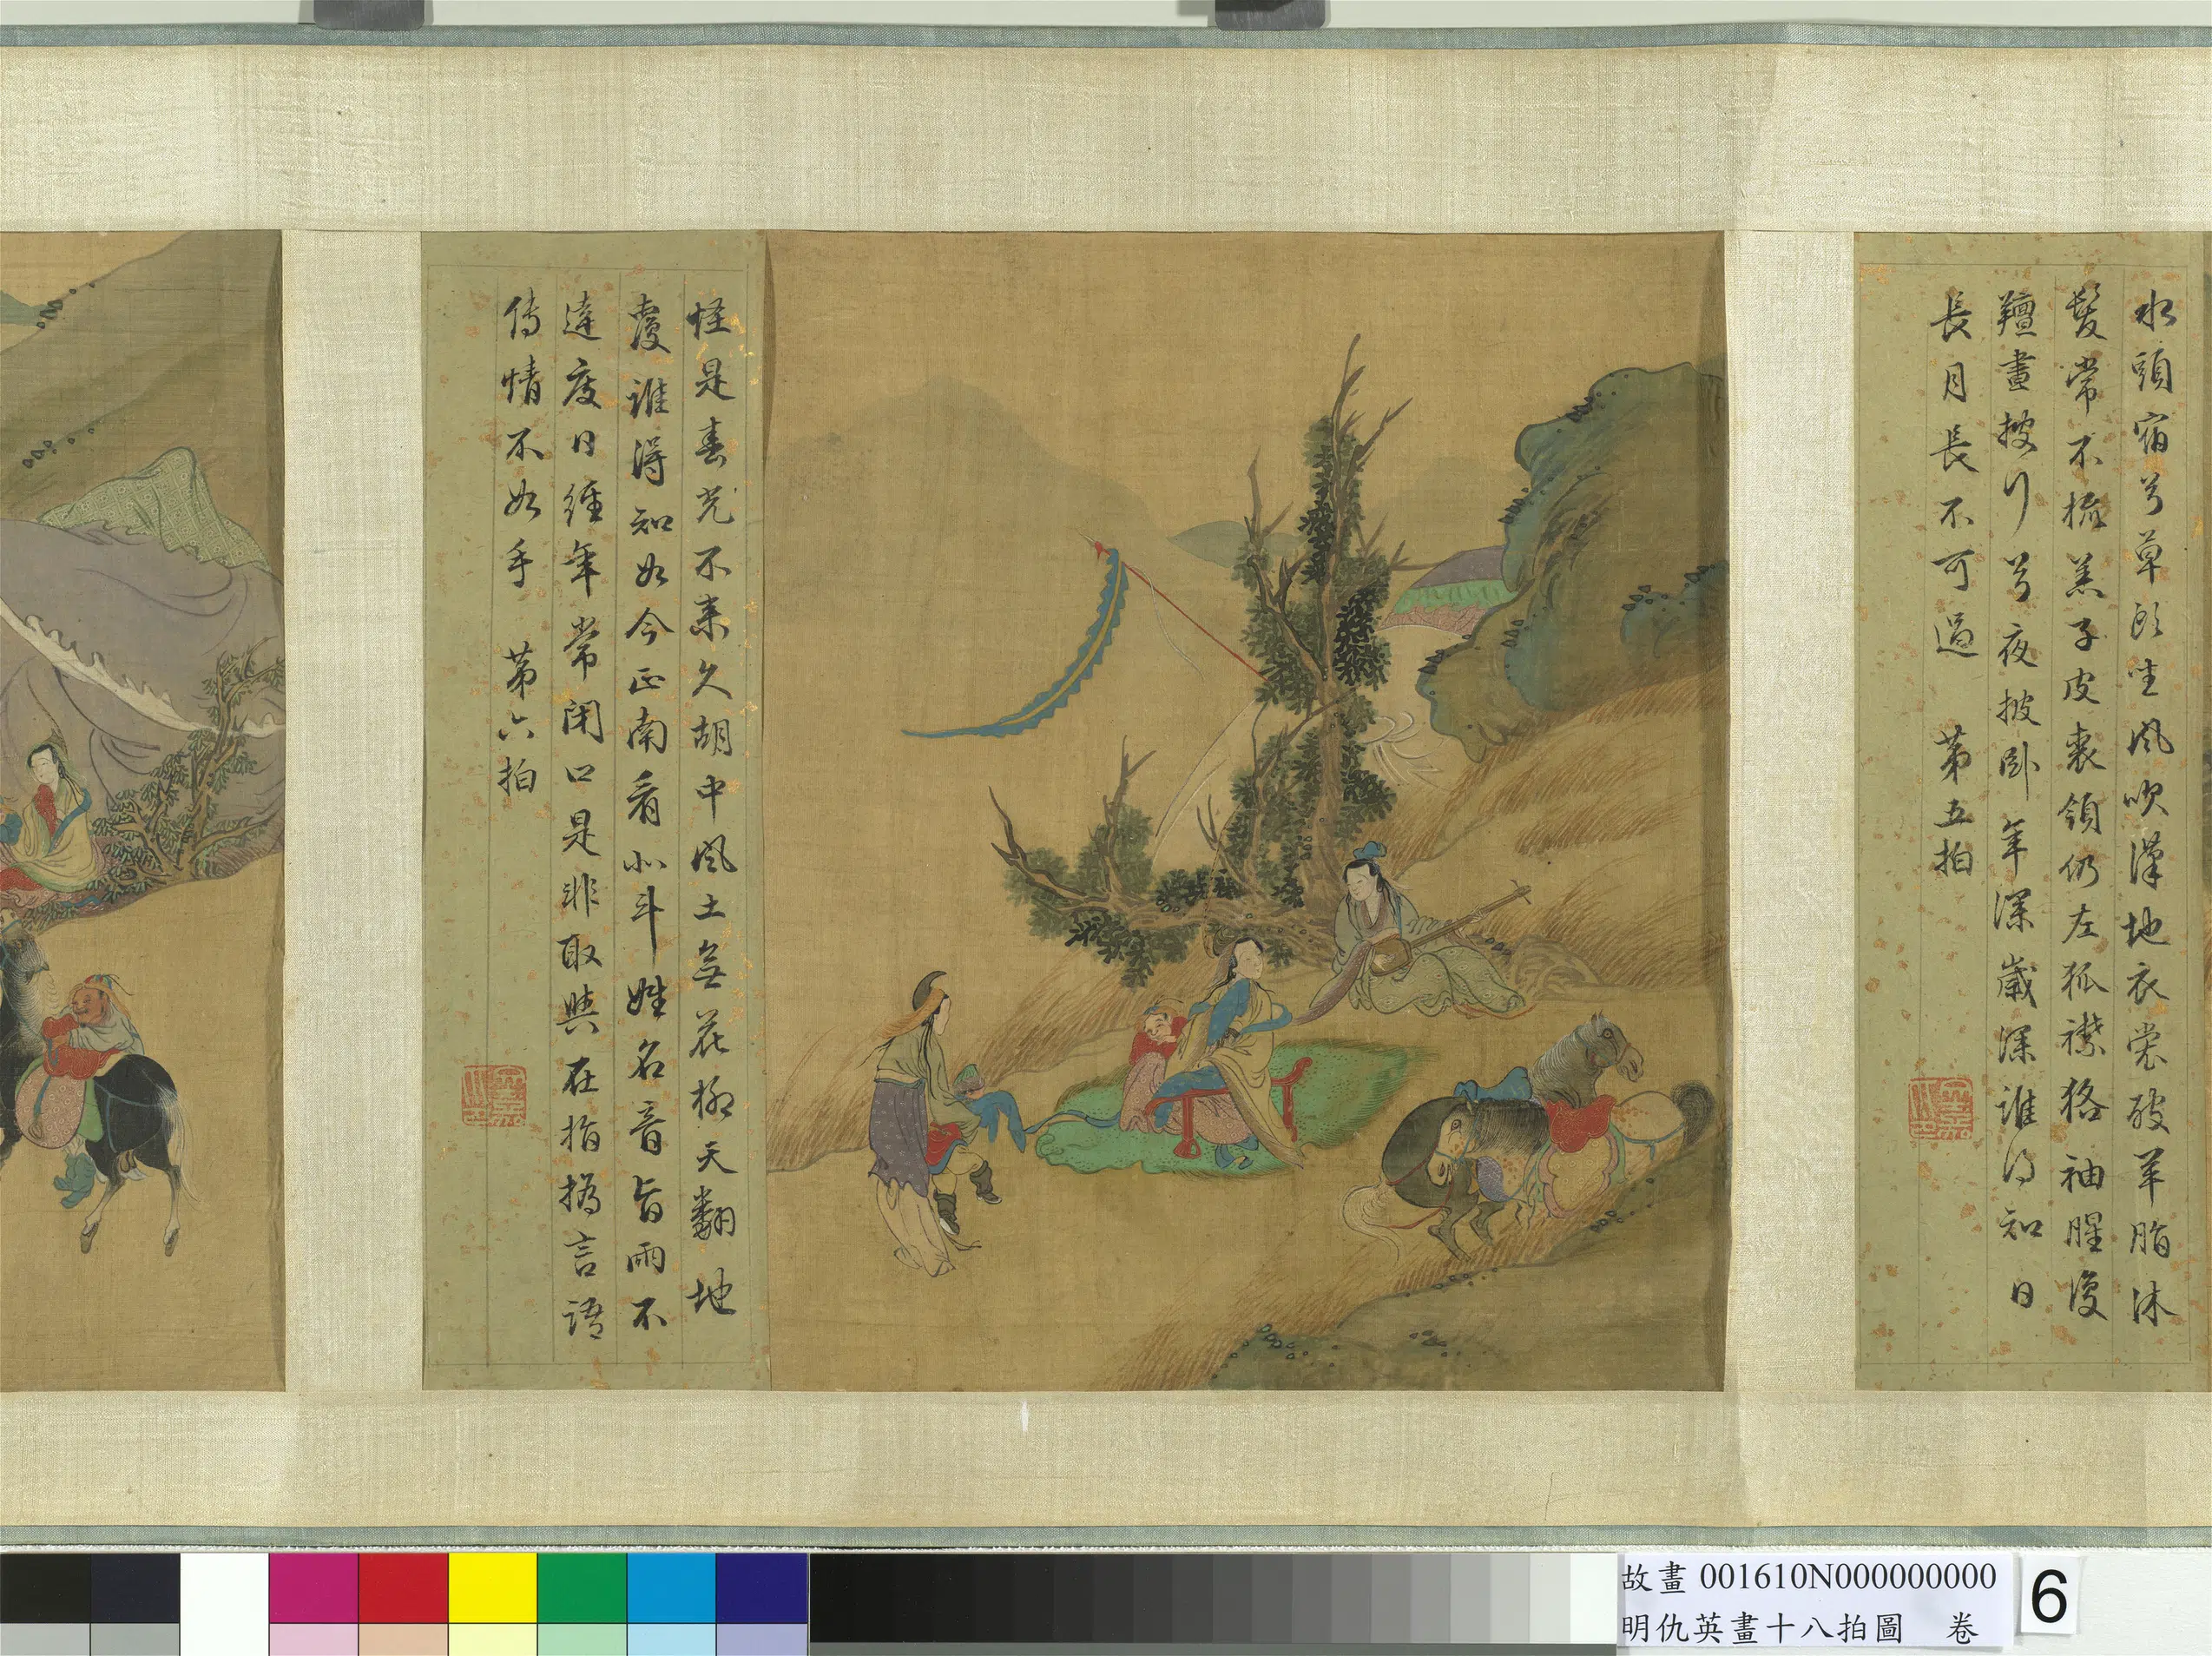 水頭宿兮草頭坐風吹漢地衣裳破羊脂沐
髮常不梳羔子皮裘領仍左狐襟狢袖腥復
羶晝披行兮夜披卧年深歲深誰得知日
長月長不可過 第五拍
怪是春光不來久胡中風土無花柳天翻地
覆誰得知如今正南看北斗姓名音旨兩不
達度日經年常閉口是非取與在指撝言語
傳情不如手 第六拍
故畫 001610N000000000
明仇英畫十八拍圖 卷
6